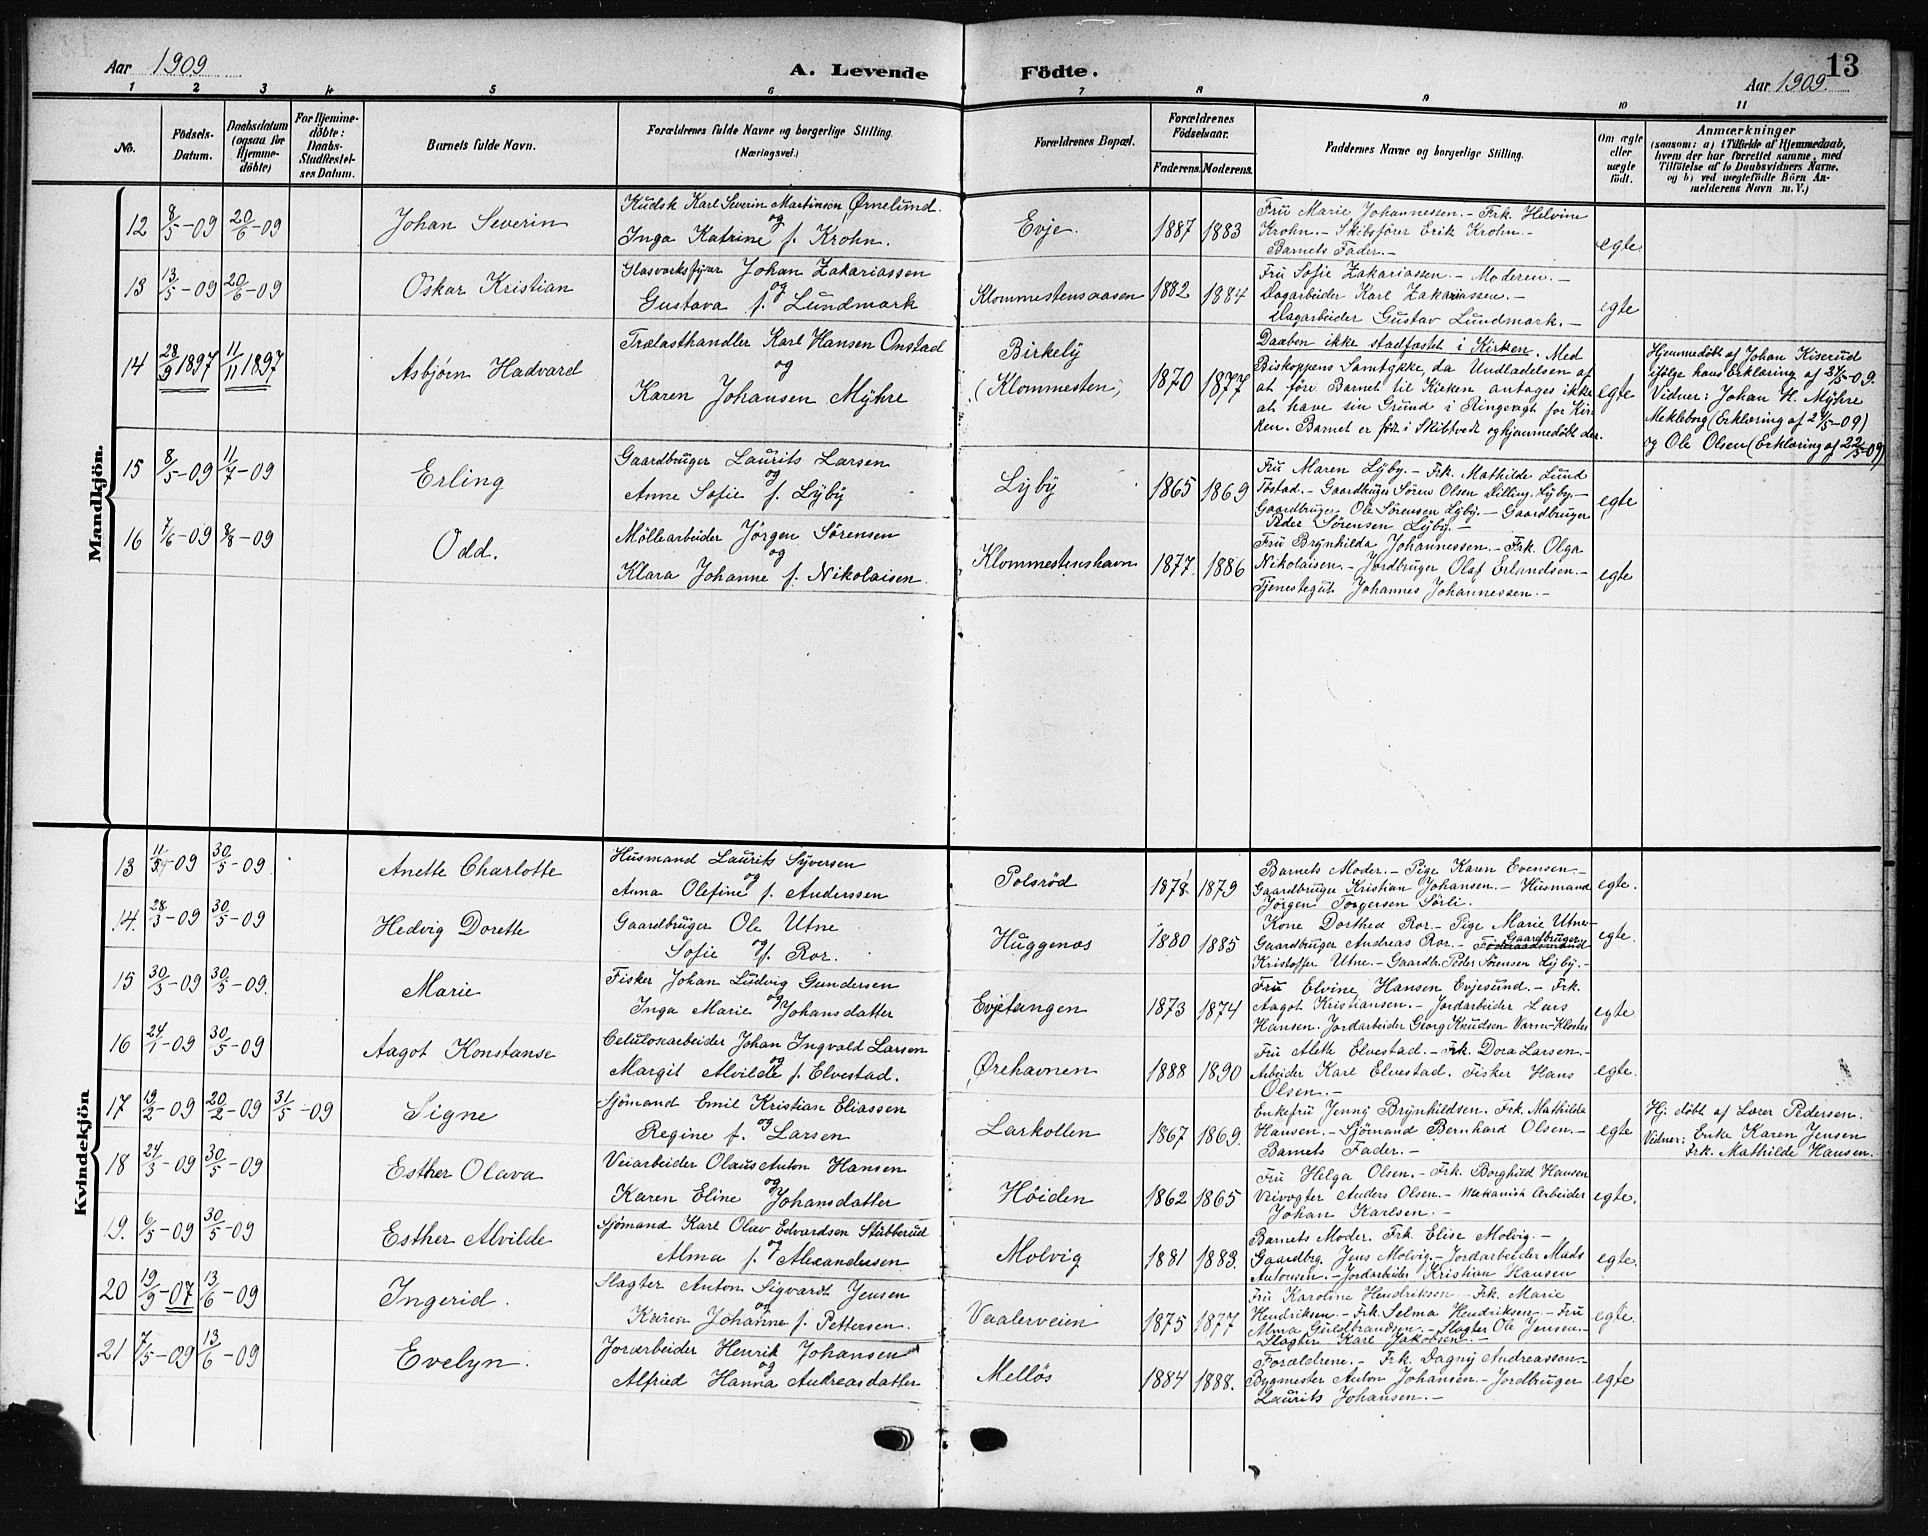 Aar 1909
A. Levende Födte.
13
Aar 1909
1 2 3 4 5 6 7 8 9 10 11
No.
Födsels-
Datum.
Daabsdatum
(ogsaa for
Hjemme-
döbte)
For Hjemme-
döbte:
Daabs-
Stadfæstel-
ses Datum.
Barnets fulde Navn.
Forældrenes fulde Navne og borgerlige Stilling.
(Næringsvei.)
Forældrenes Bopæl.
Forældrenes
Födselsaar.
Faderens. Moderens.
Faddernes Navne og borgerlige Stilling.
Om ægte
eller
uægte
födt.
Anmærkninger
(saasom: a) i Tilfælde af Hjemmedaab,
hvem der har forrettet samme, med
Tilföielse af to Daabsvidners Navne,
og b) ved uægtefödte Börn An-
melderens Navn m. V.)
Mandkjön.
12 8/5-09 20/6-09 Johan Severin
Kudsk Karl Severin Martinsen Ørnelund.
og
Inga Katrine f. Krohn.
Evje. 1887 1883
Fru Marie Johannessen.- Frk. Helvine
Krohn.- Skibsfører Erik Krohn.-
Barnets Fader.-
egte
13 13/5-09 20/6-09 Oskar Kristian
Glasværksfyrer Johan Zakariassen
og
Gustava f. Lundmark
Klommestensaasen 1882 1884
Fru Sofie Zakariassen.- Moderen.-
Dagarbeider Karl Zakariassen.-
Dagarbeider Gustav Lundmark.-
egte
14 28/9 1897 11/11 1897 Asbjørn Hadvard
Trælasthandler Karl Hansen Onstad
og
Karen Johansen Myhre
Birkely
(Klommesten) 1870 1877
Daaben ikke stadfæstet i Kirken. Med
Biskoppens Samtykke, da Undladelsen af
at føre Barnet til Kirken antages ikke
at have sin Grund i Ringeagt for Kir-
ken. Barnet er født i Skibtvedt og hjemmedøbt der.
egte
Hjemmedøbt af Johan Kiserud
ifølge hans Erklæring af 27/5-09.
Vidner: Johan H. Myhre
Mekleborg (Erklæring af 24/5-09)
og Ole Olsen (Erklæring af 22/5-09)
15 8/5-09 11/7-09 Erling
Gaardbruger Laurits Larsen
og
Anne Sofie f. Lyby
Lyby 1865 1869
Fru Maren Lyby.- Frk. Mathilde Lund
Tostad.- Gaardbruger Søren Olsen Dilling. Lyby.-
Gaardbruger Ole Sørensen Lyby.- Gaardbruger
Peder Sørensen Lyby.-
egte
16 7/6-09 8/8-09 Odd.
Møllearbeider Jørgen Sørensen
og
Klara Johanne f. Nikolaisen.
Klommestenshavn 1877. 1886
Fru Brynhilda Johannessen.- Frk. Olga
Nikolaisen.- Jordbruger Olaf Erlandsen.-
Tjenestegut Johannes Johannessen.-
egte
Kvindekjön
13 11/3-09 30/5-09 Anette Charlotte
Husmand Laurits Syversen
og
Anna Olefine f. Anderssen
Polsrød 1878 1879
Barnets Moder.- Pige Karen Evensen.-
Gaardbruger Kristian Johansen.- Husmand
Jørgen Torgersen Sørli.
egte.
14. 28/3-09 30/5-09 Hedvig Dorette
Gaardbruger Ole Utne
og
Sofie f. Ror.
Huggenes 1880 1885
Kone Dorthea Ror.- Pige Marie Utne-
Gaardbruger Andreas Ror.- Gaardbruger
Kristoffer Utne.- Gaardb. Peder Sørensen Lyby.-
egte.
15 30/3-09 30/5-09. Marie
Fisker Johan Ludvig Gundersen
og
Inga Marie Johansdatter
Evjetangen 1873 1874
Fru Elvine Hansen Evjesund.- Frk.
Aagot Kristiansen.- Jordarbeider Lars
Hansen. Jordarbeider Georg Knudsen Varne-Kloster
egte
16 24/1-09 30/5-09 Aagot Konstanse
Celulosearbeider Johan Ingvald Larsen
og
Margit Alvilde f. Elvestad.
Ørehavnen 1888 1890
Fru Alette Elvestad.- Frk. Dora Larsen.-
Arbeider Karl Elvestad. Fisker Hans
Olsen.-
egte.
17 19/2-09 20/2-09 31/5-09 Signe
Sjømand Emil Kristian Eliassen
og
Regine f. Larsen
Larkollen 1867 1869.
Enkefru Jenny Brynhildsen. Frk. Mathilde
Hansen.- Sjømand Bernhard Olsen.-
Barnets Fader.-
egte
Hj. døbt af Lærer Pedersen.
Vidner: Enke Karen Jensen
Frk. Mathilde Hansen.
18 24/3-09 30/5-09 Esther Olava
Veiarbeider Olaus Anton Hansen
og
Karen Eline Johansdatter
Høiden 1862 1865
Fru Helga Olsen.- Frk. Borghild Hansen
Veivogter Anders Olsen.- Mekanisk Arbeider
Johan Karlsen.-
egte.
19. 6/5-09 30/5-09 Esther Alvilde
Sjømand Karl Olav Edvardsen Stubberud
og
Alma f. Alexandersen
Molvig 1881 1883.
Barnets Moder. Frk. Elise Molvig.-
Gaardbrg. Jens Molvig.- Jordarbeider Mads
Antonsen.- Jordarbeider Kristian Hansen
egte.
20 19/9-07 13/6-09 Ingerid.
Slagter Anton Sigvardt Jensen
og
Karen Johanne f. Pettersen.
Vaalerveien 1875 1877
Fru Karoline Hendriksen- Frk. Marie
Hendriksen.- Frk. Selma Hendriksen.- Fru
Alma Guldbrandsen.- Slagter Ole Jensen.-
Slagter Karl Jakobsen.-
egte
21 7/5-09 13/6-09 Evelyn.
Jordarbeider Henrik Johansen
og
Alfried Hanna Andreasdatter
Melløs 1884 1888.
Forældrene.- Frk. Dagny Andreassen.-
Bygmester Anton Johansen.- Jordbruger
Laurits Johansen.-
egte